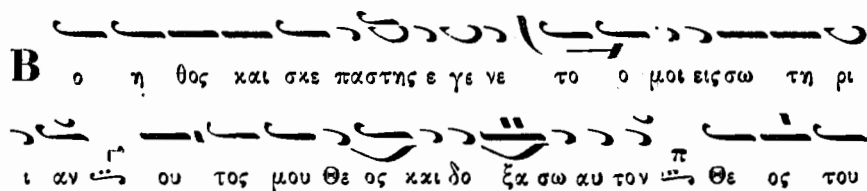 Β ο η θος και σκε παστης ε γε νε το ο μοι εις σω τη ρι
ι αν ου τος μου Θε ος και δο ξα σω αυ τον π Θε ος του